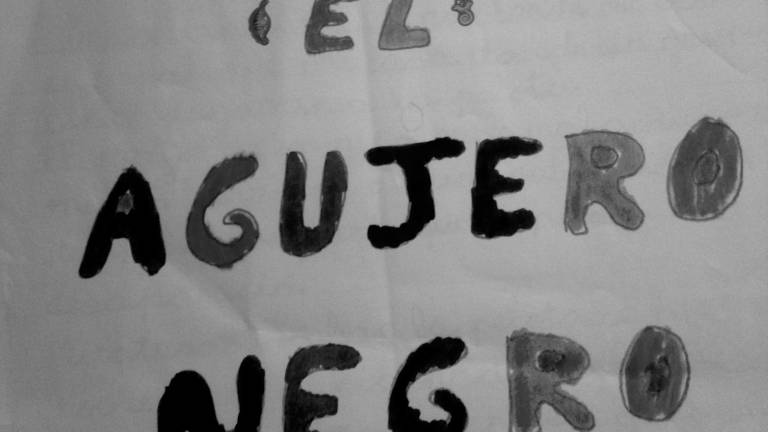 ¡EL!
AGUJERO
NEGRO